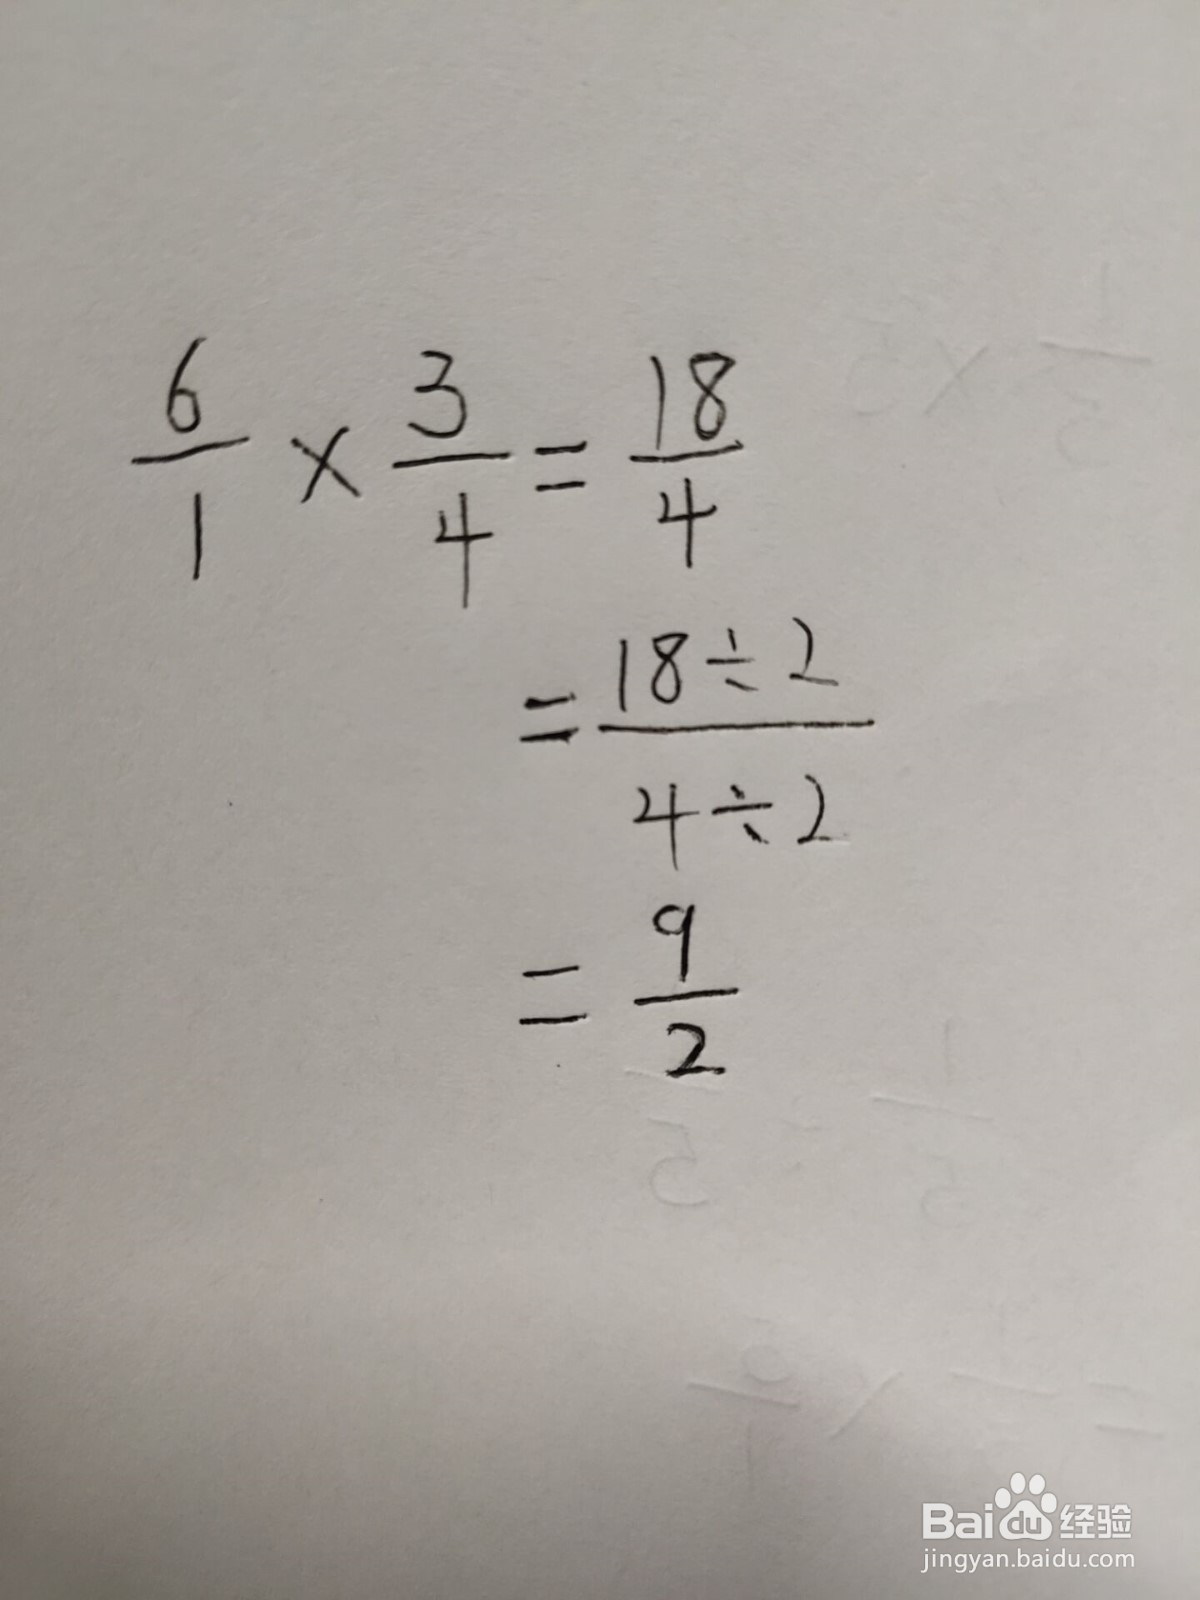 6/1 × 3/4 = 18/4
= 18÷2/4÷2
= 9/2
Baidu 经验
jingyan.baidu.com